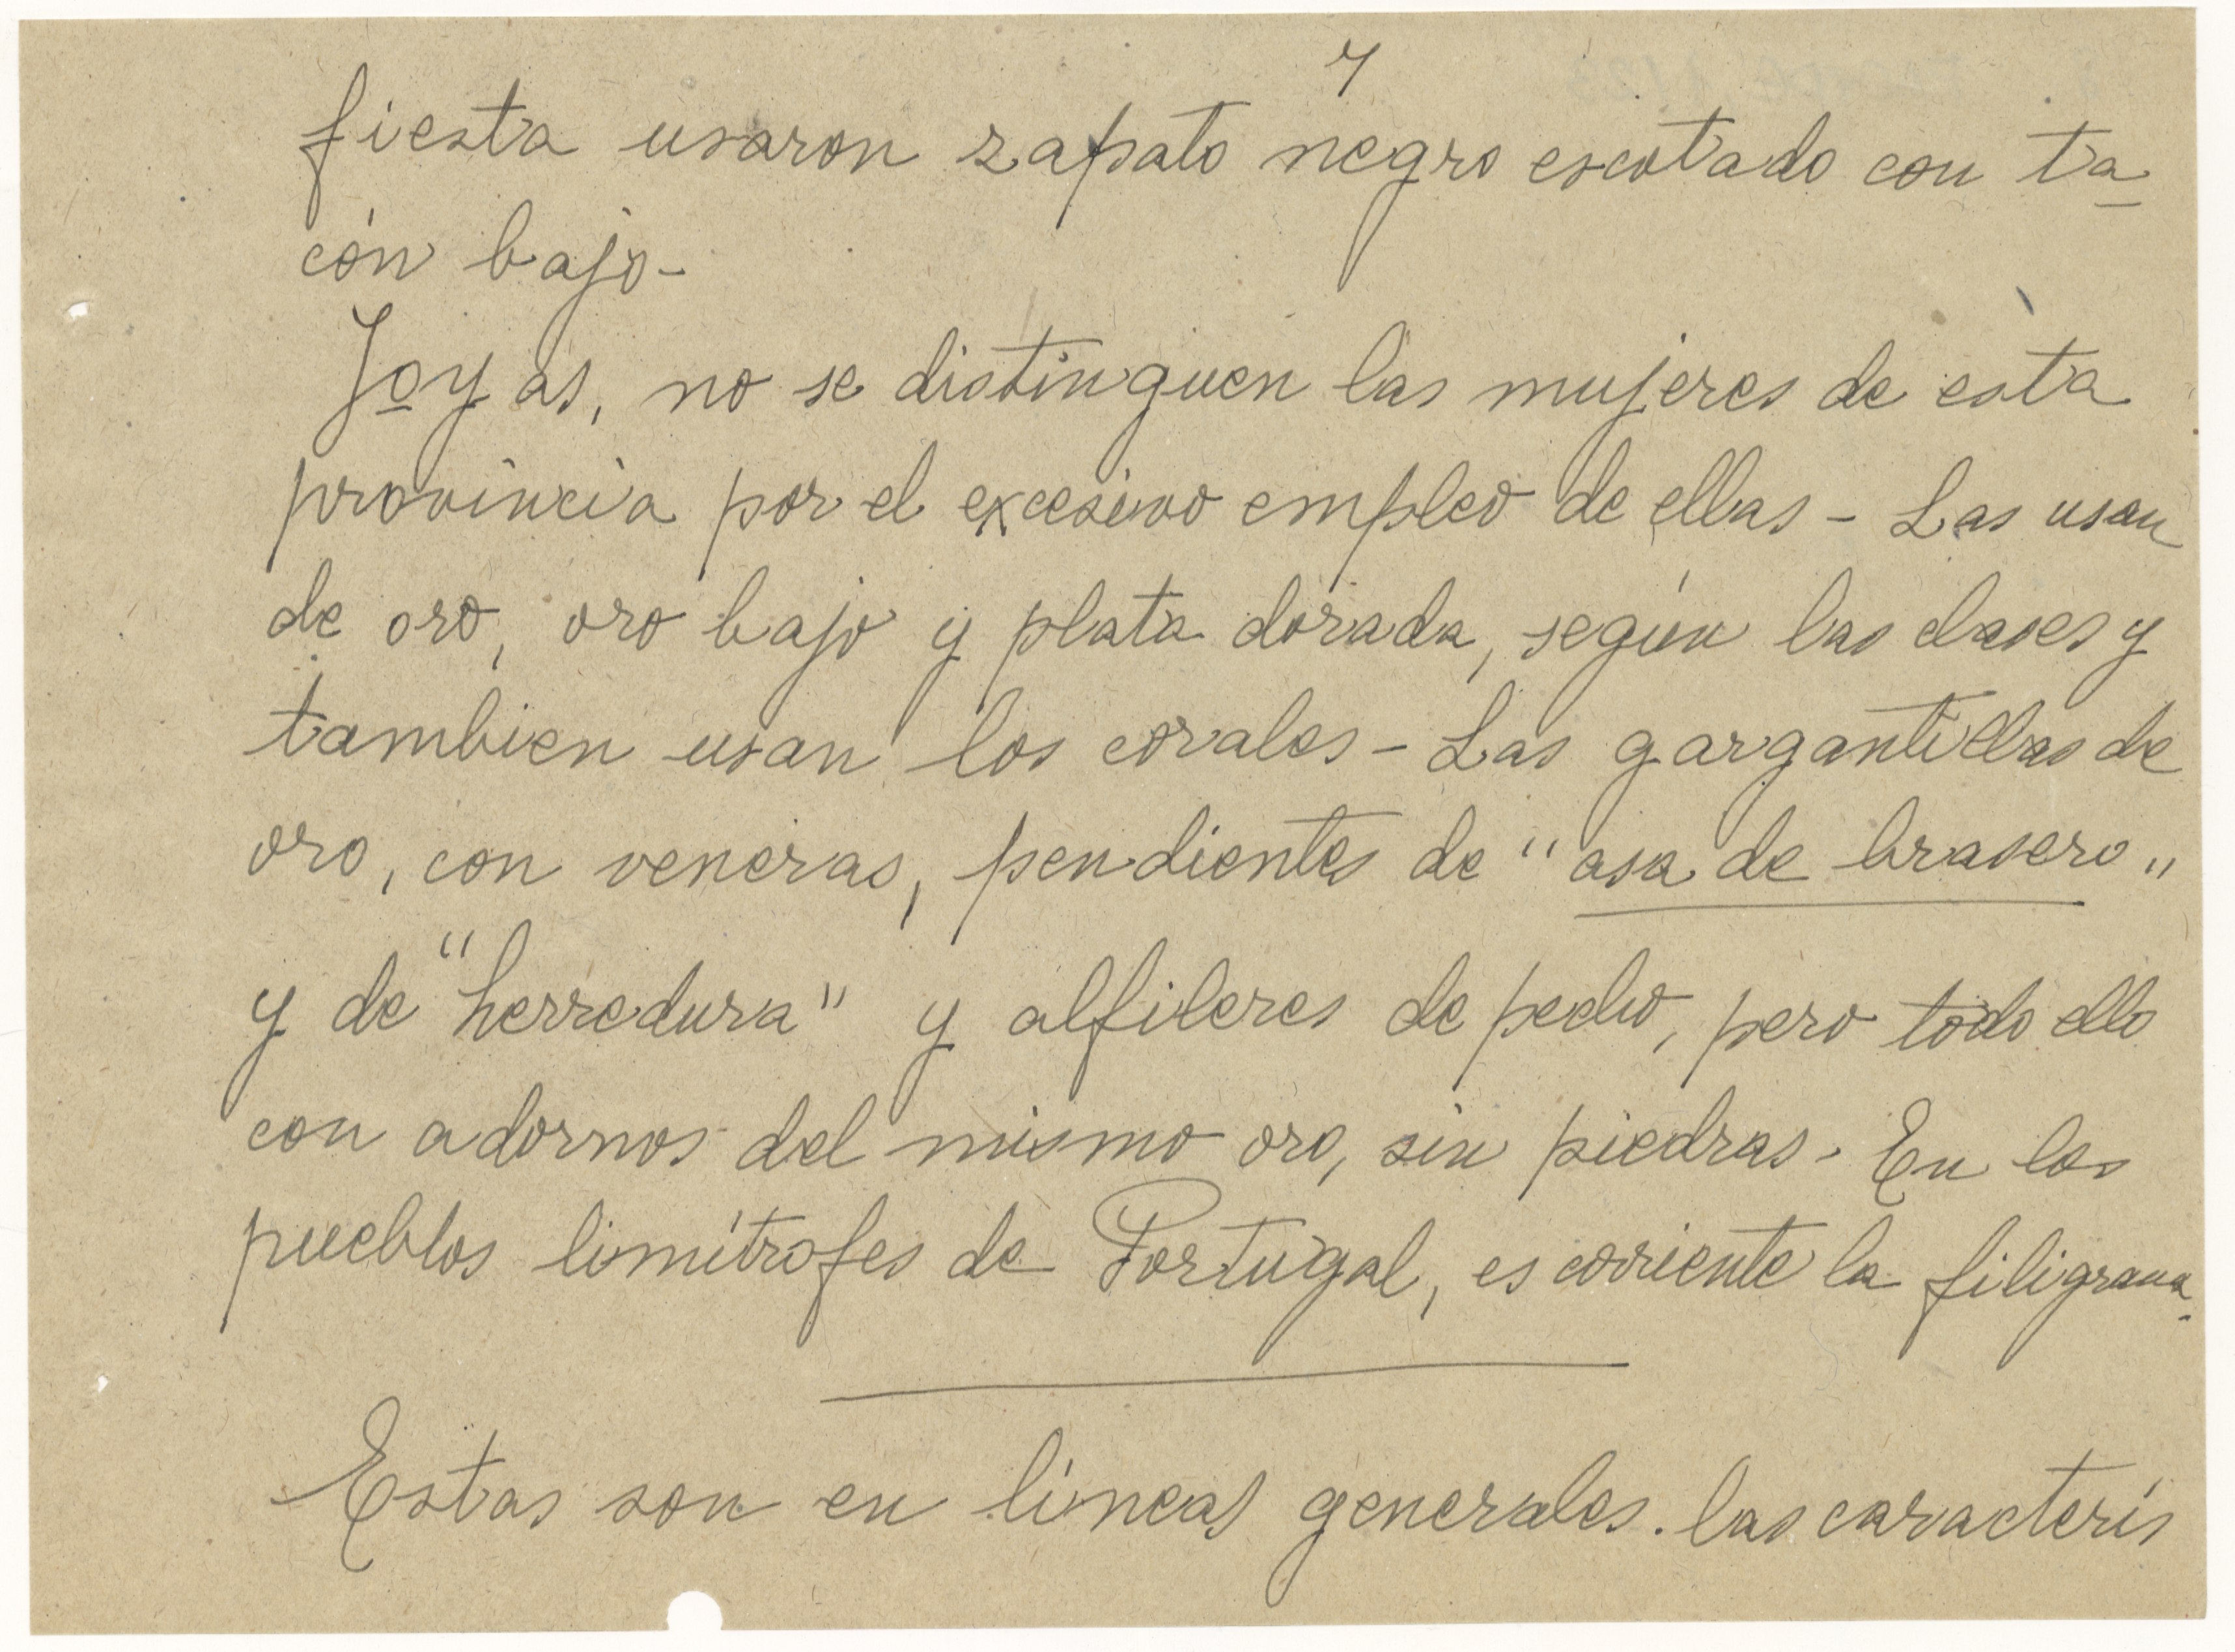 7
fiesta usaron zapato negro escotado con ta
cón bajo-
Joyas, no se distinguen las mujeres de esta
provincia por el excesivo empleo de ellas - Las usan
de oro, oro bajo y plata dorada, según las clases y
tambien usan los corales - Las gargantillas de
oro, con veneras, pendientes de "asa de brasero"
y de "herredura" y alfileres de pecho, pero todo ello
con adornos del mismo oro, sin piedras. En los
pueblos limítrofes de Portugal, es corriente la filigrana.
Estas son en líneas generales. las caracterís